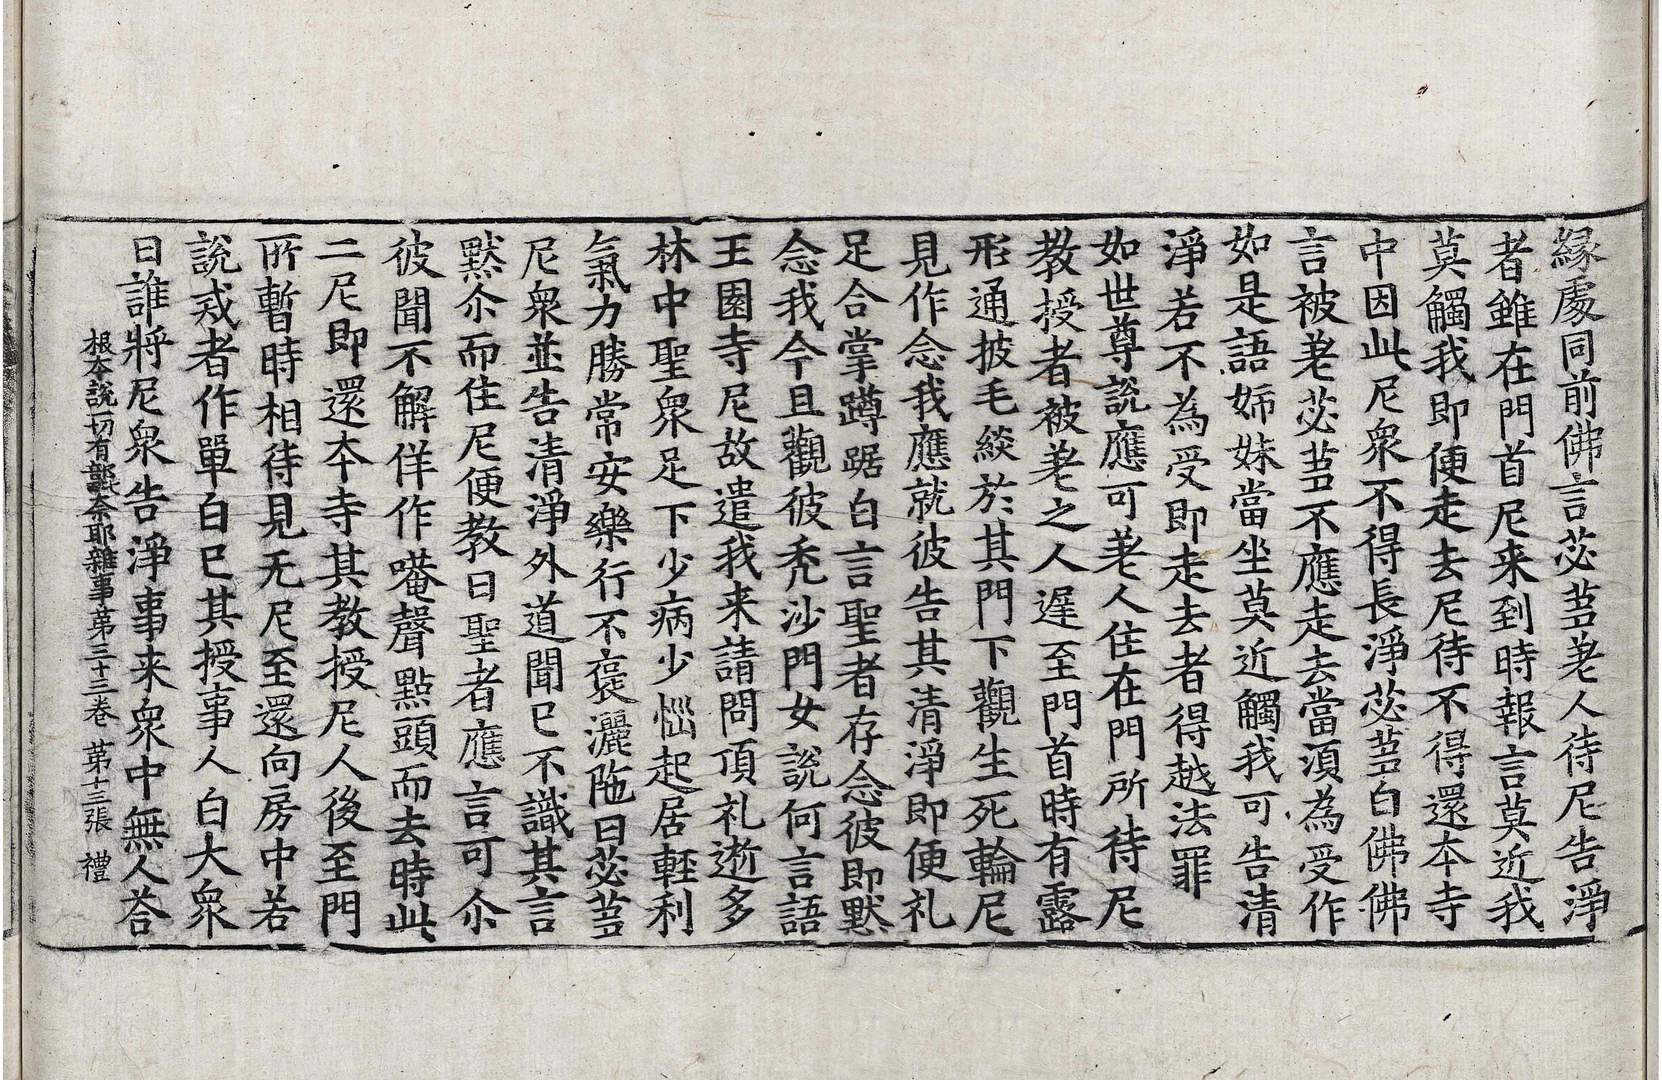 縁處同前佛言苾芻老人待尼告淨
者雖在門首尼来到時報言莫近我
莫觸我即便走去尼待不得還本寺
中因此尼衆不得長淨苾芻白佛佛
言被老苾芻不應走去當湏為受作
如是語姉妹當坐莫近觸我可告清
淨若不為受即走去者得越法罪
如世尊説應可老人住在門所待尼
教授者被老之人遅至門首時有露
形通披毛緂於其門下觀生死輪尼
見作念我應就彼告其清淨即便礼
足合掌蹲踞白言聖者存念彼即默
念我今且觀彼禿沙門女説何言語
王園寺尼故遣我来請問頂礼逝多
林中聖衆足下少病少惱起居輕利
氣力勝常安樂行不褒灑陁日苾芻
尼衆並告清淨外道聞已不識其言
黙尒而住尼便教曰聖者應言可尒
彼聞不解佯作唵聲點頭而去時此
二尼即還本寺其教授尼人後至門
所暫時相待見无尼至還向房中若
說戒者作單白已其授事人白大衆
曰誰將尼衆告淨事来衆中無人荅
根本説一切有部毗奈耶雜事第三十三卷 第十三張 禮